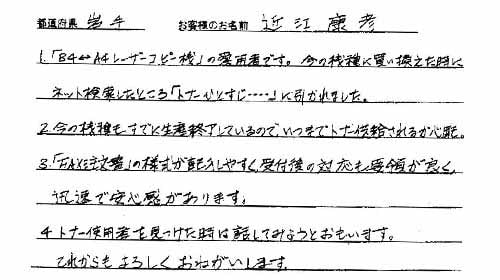 都道府県 岩手 お客様のお名前 近江 康彦
1.「B4↔A4レーザーコピー機」の愛用者です。今の機種に買い換えた時に
ネット検索したところ「トナーひとすじ・・・・・」に引かれました。
2.今の機種もすでに生産終了しているのでいつまでトナー供給されるか心配。
3.「FAX注文書」の様式が記入しやすく、受付後の対応も要領が良く、
迅速で安心感があります。
4 トナー使用者を見つけた時は話してみようとおもいます。
これからもよろしくおねがいします。